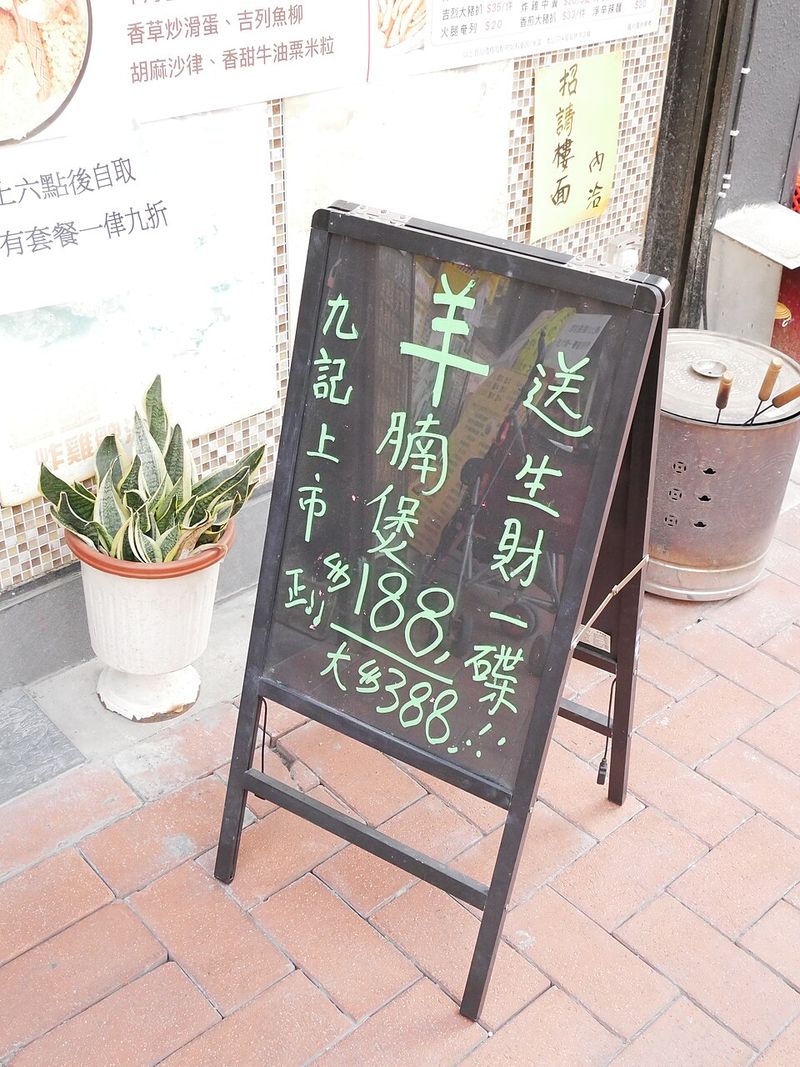 香草炒滑蛋、吉列魚柳
胡麻沙律、香甜牛油粟米粒
吉烈大豬扒 $35/件
火腿奄列 $20
香煎大豬扒 $33/件
上六點後自取
有套餐一律九折
招請樓面
內洽
炸雞
九記上市
羊腩煲
送生財一碟!!
正 $188
大 $388